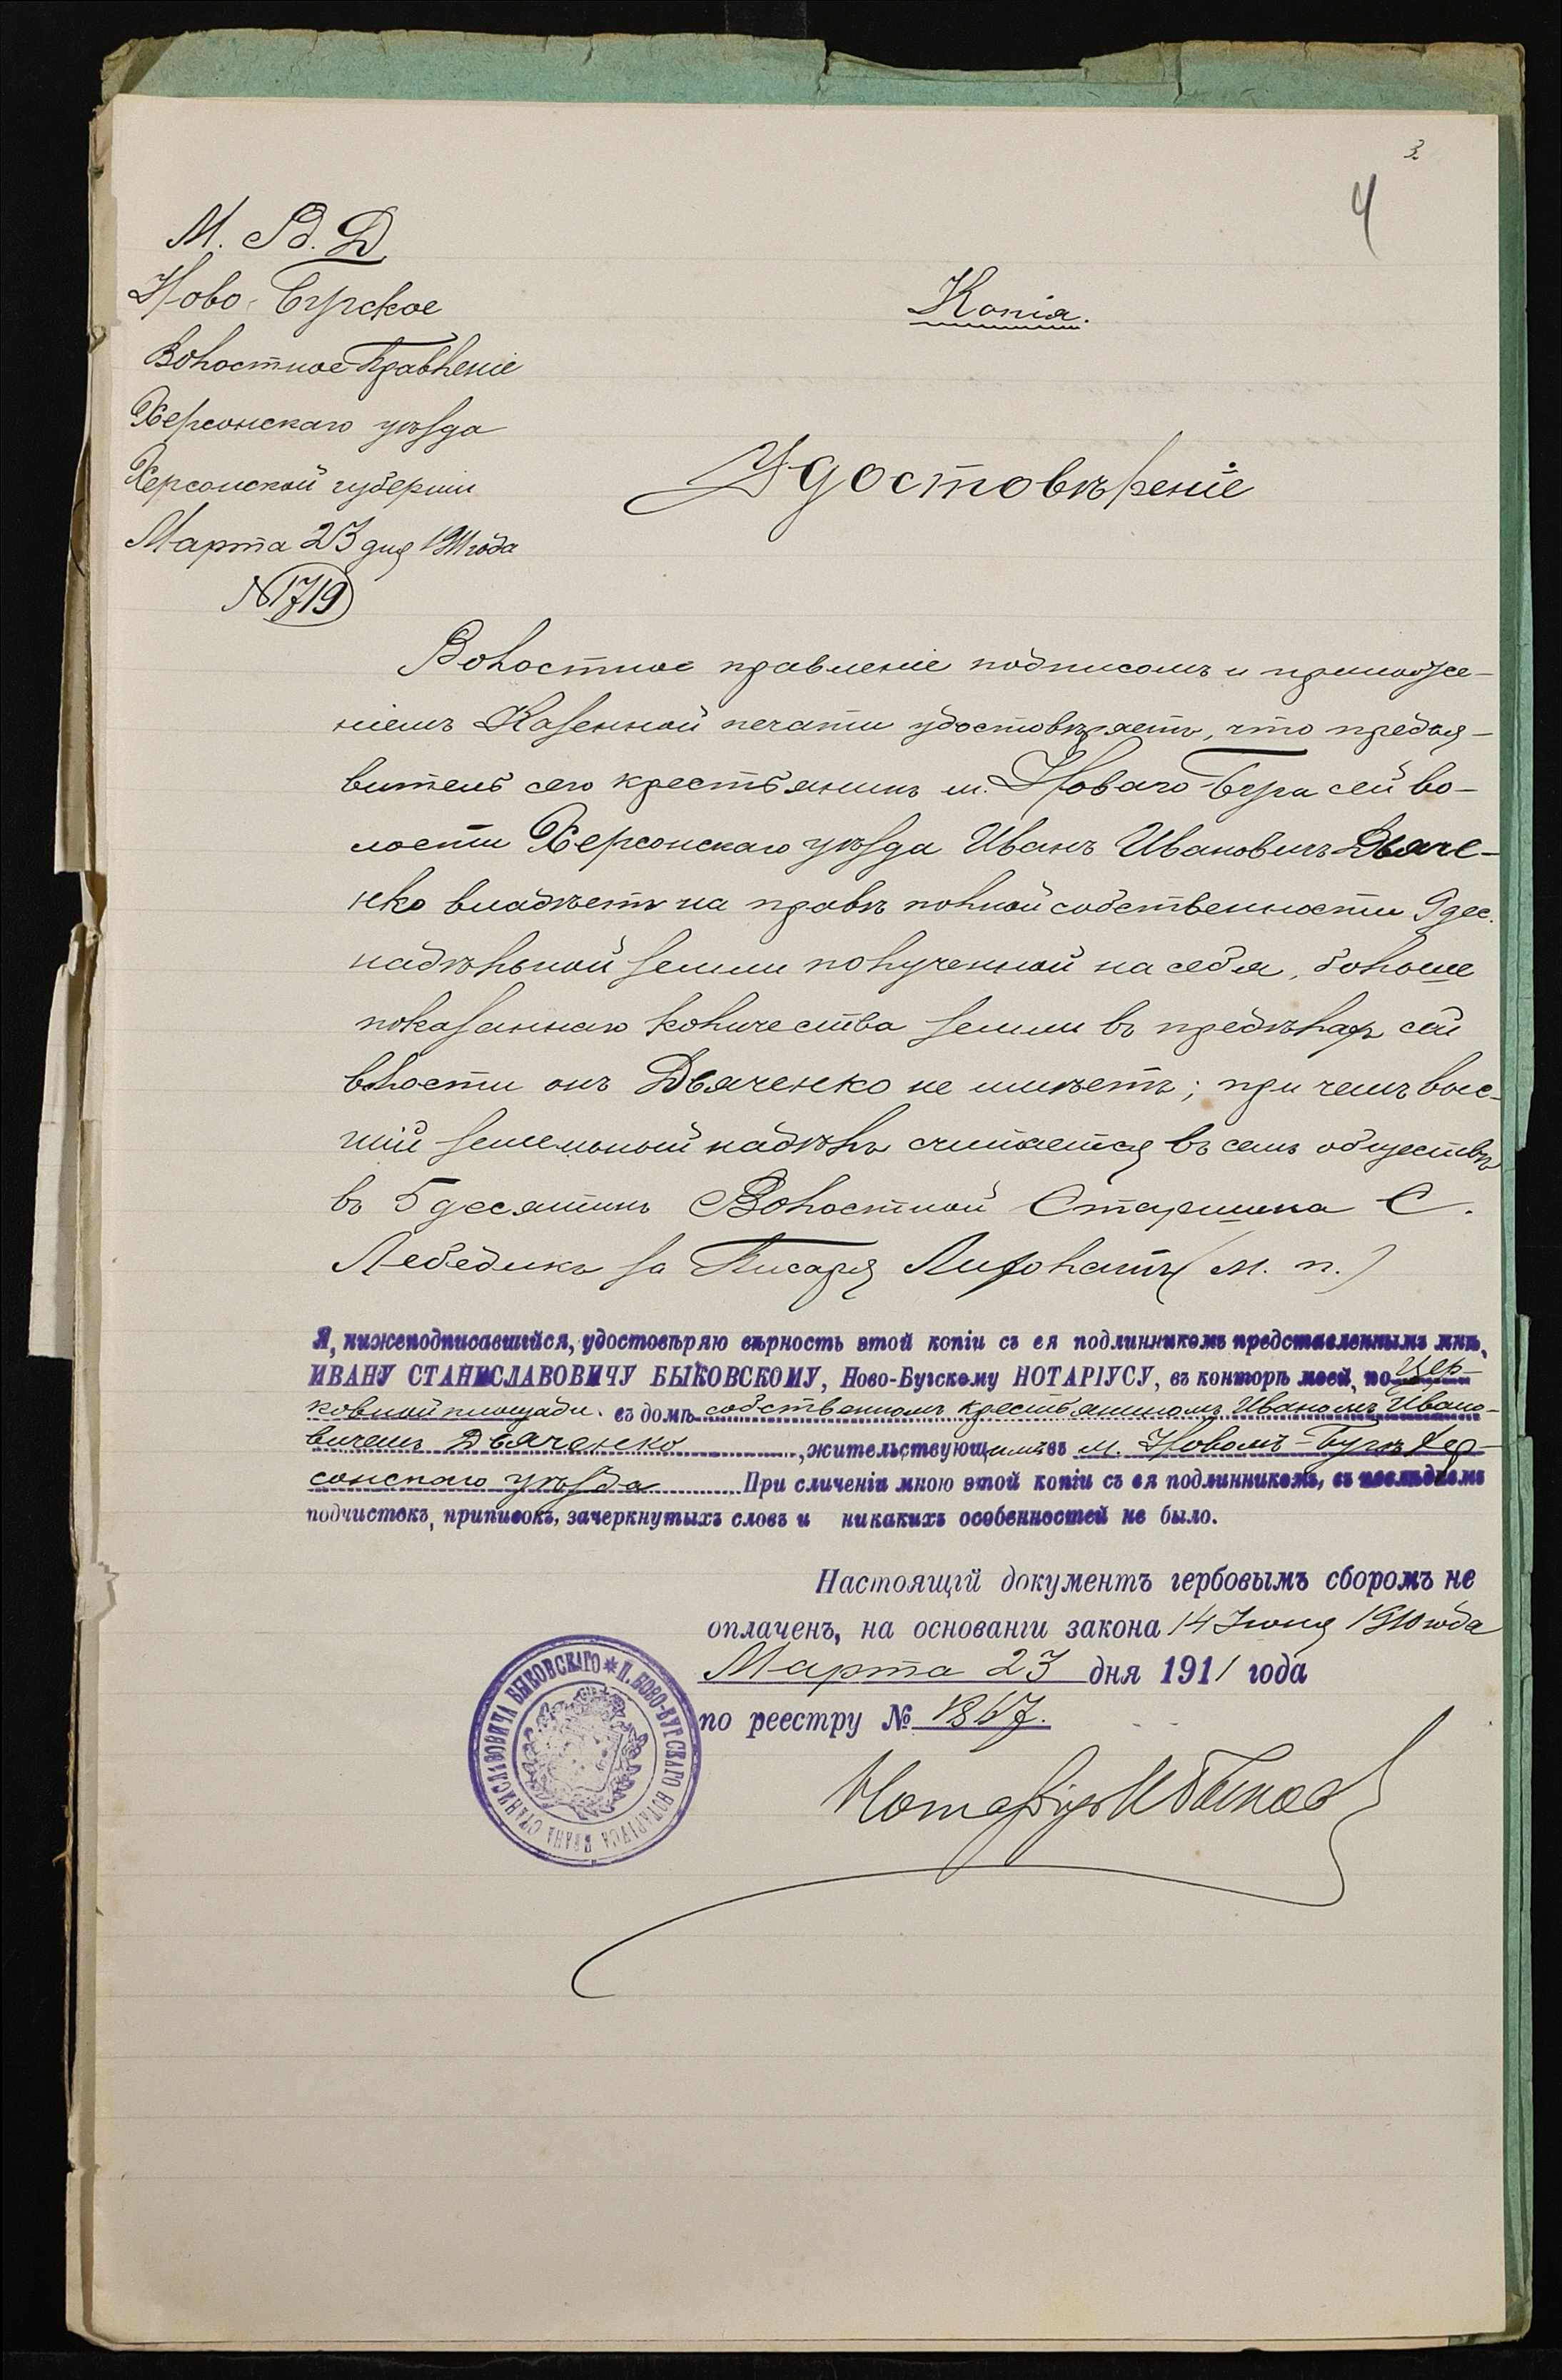 3
4
М. В. Д.
Ново-Бугское
Волостное Правленіе
Херсонскаго уѣзда
Херсонской губерніи
Марта 23 дня 1911 года
№ 1719
Копія.
Удостовѣреніе
Волостное правленіе подписомъ и приложе-
ніемъ Казенной печати удостовѣряетъ, что предъя-
витель сего крестьянинъ м. Новаго-Буга сей во-
лости Херсонскаго уѣзда Иванъ Ивановичъ Дьяче-
нко владѣетъ на правѣ полной собственности 9 дес.
надѣльной земли полученной на себя, больше
показаннаго количества земли въ предѣлахъ сей
волости онъ Дьяченко не имѣетъ; при чемъ выс-
шій земельный надѣлъ считается въ семъ обществѣ
въ 5 десятинъ Волостной Старшина С.
Лебединъ за Писаря (м. п.)
Я, нижеподписавшійся, удостовѣряю вѣрность этой копіи съ ея подлинникомъ представленнымъ мнѣ,
ИВАНУ СТАНИСЛАВОВИЧУ БЫКОВСКОМУ, Ново-Бугскому НОТАРІУСУ, въ конторѣ моей, по Цер-
ковной площади въ домѣ собственномъ крестьяниномъ Иваномъ Ивано-
вичемъ Дьяченко, жительствующимъ въ м. Новомъ-Бугѣ Хер-
сонскаго уѣзда При сличеніи мною этой копіи съ ея подлинникомъ, въ послѣднемъ
подчистокъ, приписокъ, зачеркнутыхъ словъ и никакихъ особенностей не было.
Настоящій документъ гербовымъ сборомъ не
оплаченъ, на основаніи закона 14 Іюня 1910 года
Марта 23 дня 1911 года
по реестру № 1867.
Нотаріусъ И Быков
ИВАНА СТАНИСЛАВОВИЧА БЫКОВСКАГО * П. НОВО-БУГСКАГО НОТАРІУСА